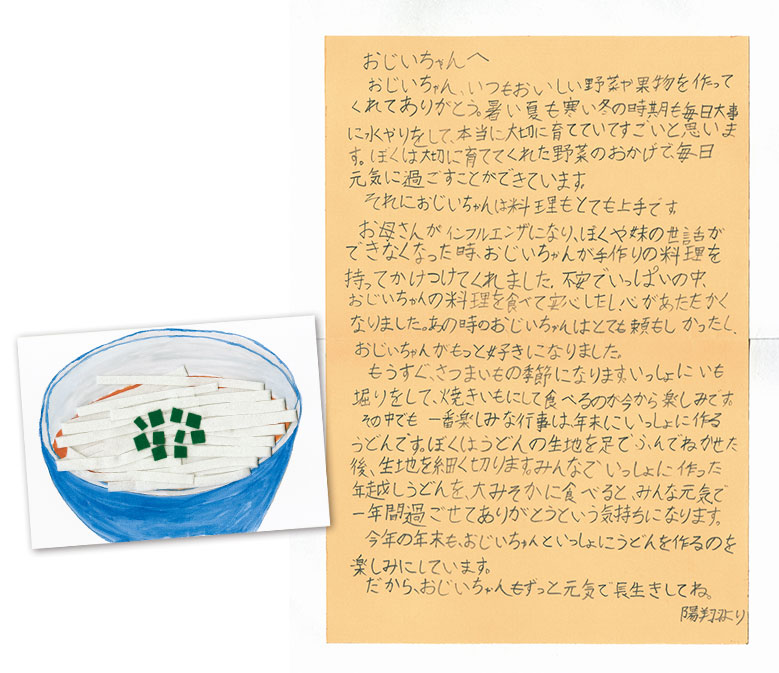 おじいちゃんへ
おじいちゃん、いつもおいしい野菜や果物を作って
くれてありがとう。暑い夏も寒い冬の時期も毎日大事
に水やりをして、本当に大切に育てていてすごいと思いま
す。ぼくは大切に育ててくれた野菜のおかげで、毎日
元気に過ごすことができています。
それにおじいちゃんは料理もとても上手です。
お母さんがインフルエンザになり、ぼくや妹の世話が
できなくなった時、おじいちゃんが手作りの料理を
持ってかけつけてくれました。不安でいっぱいの中、
おじいちゃんの料理を食べて安心したし、心があたたかく
なりました。あの時のおじいちゃんはとても頼もしかったし、
おじいちゃんがもっと好きになりました。
もうすぐ、さつまいもの季節になります。いっしょにいも
堀りをして、焼きいもにして食べるのが今から楽しみです。
その中でも一番楽しみな行事は、年末にいっしょに作る
うどんです。ぼくはうどんの生地を足でふんでねかせた
後、生地を細く切ります。みんなでいっしょに作った
年越しうどんを、大みそかに食べると、みんな元気で
一年間過ごせてありがとうという気持ちになります。
今年の年末も、おじいちゃんといっしょにうどんを作るのを
楽しみにしています。
だから、おじいちゃんもずっと元気で長生きしてね。
陽翔より